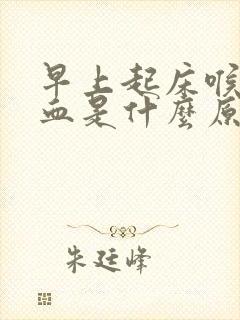 早上起床喉
血是什麼原
朱廷峰